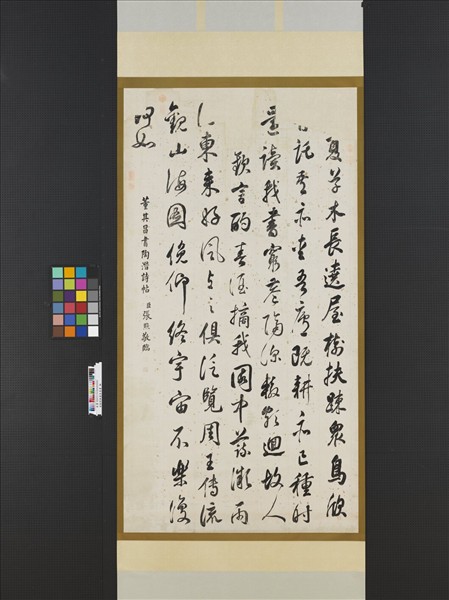 夏草木長遶屋樹扶疎衆鳥欣
託吾亦愛吾廬既耕亦已種時
還讀我書窮巷隔深轍頗迴故人
歡言酌春酒摘我園中蔬微雨
從東來好風與之俱泛覽周王傳流
觀山海圖俛仰終宇宙不樂復
何如
董其昌書陶潛詩帖 臣張照敬臨